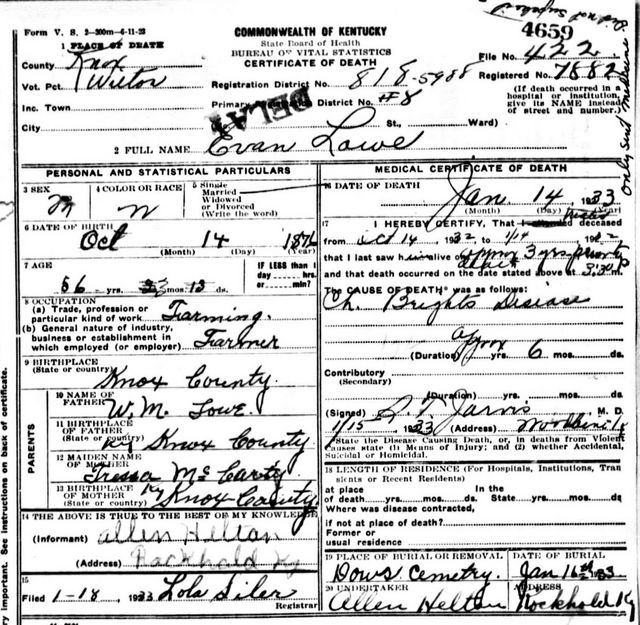 Form V. S. 2-200m-6-11-23
COMMONWEALTH OF KENTUCKY
State Board of Health
BUREAU OF VITAL STATISTICS
CERTIFICATE OF DEATH
4659
File No. 422
Registered No. 7882
(If death occurred in a hospital or institution, give its NAME instead of street and number.)
1 PLACE OF DEATH
County Knox
Vot. Pct. Wilton
Inc. Town
City
Registration District No. 818-5988
Primary Registration District No. #8
St., Ward)
DELAY
2 FULL NAME Evan Lowe
PERSONAL AND STATISTICAL PARTICULARS
3 SEX M
4 COLOR OR RACE W
5 Single
Married
Widowed
or Divorced
(Write the word)
6 DATE OF BIRTH
Oct 14 1876
(Month) (Day) (Year)
7 AGE
56 yrs. 3 mos. ds.
IF LESS than 1 day hrs. or min.?
8 OCCUPATION
(a) Trade, profession or particular kind of work Farming.
(b) General nature of industry, business or establishment in which employed (or employer) Farmer
9 BIRTHPLACE
(State or country) Knox County
PARENTS
10 NAME OF FATHER W.M. Lowe.
11 BIRTHPLACE OF FATHER
(State or country) Ky Knox County
12 MAIDEN NAME OF MOTHER McCarty
13 BIRTHPLACE OF MOTHER
(State or country) Ky Knox County
14 THE ABOVE IS TRUE TO THE BEST OF MY KNOWLEDGE
(Informant) Allen Helton
(Address) Rockhold Ky
15
Filed 1-18, 1933 Lola Siler
Registrar
MEDICAL CERTIFICATE OF DEATH
16 DATE OF DEATH
Jan 14 1933
(Month) (Day) (Year)
17 I HEREBY CERTIFY, That I deceased
from Oct 14 1932 to 1/14
that I last saw h alive on approx 3 yrs prior to death
and that death occurred on the date stated above at 5:30 m.
The CAUSE OF DEATH* was as follows:
Ch. Brights Disease
(Duration) approx yrs. 6 mos. ds.
Contributory
(Secondary)
(Duration) yrs. mos. ds.
(Signed) Jarvis M. D.
1/15 1933 (Address)
*State the Disease Causing Death, or, in deaths from Violent Causes state (1) Means of Injury; and (2) whether Accidental, Suicidal or Homicidal.
18 LENGTH OF RESIDENCE (For Hospitals, Institutions, Transients or Recent Residents)
at place of death yrs. mos. ds. In the State yrs. mos. ds.
Where was disease contracted,
if not at place of death?
Former or
usual residence
19 PLACE OF BURIAL OR REMOVAL
Dows Cemetry.
DATE OF BURIAL
Jan 16th 33
20 UNDERTAKER
Allen Helton
ADDRESS
Rockhold Ky
y important. See instructions on back of certificate.
only sent medicine